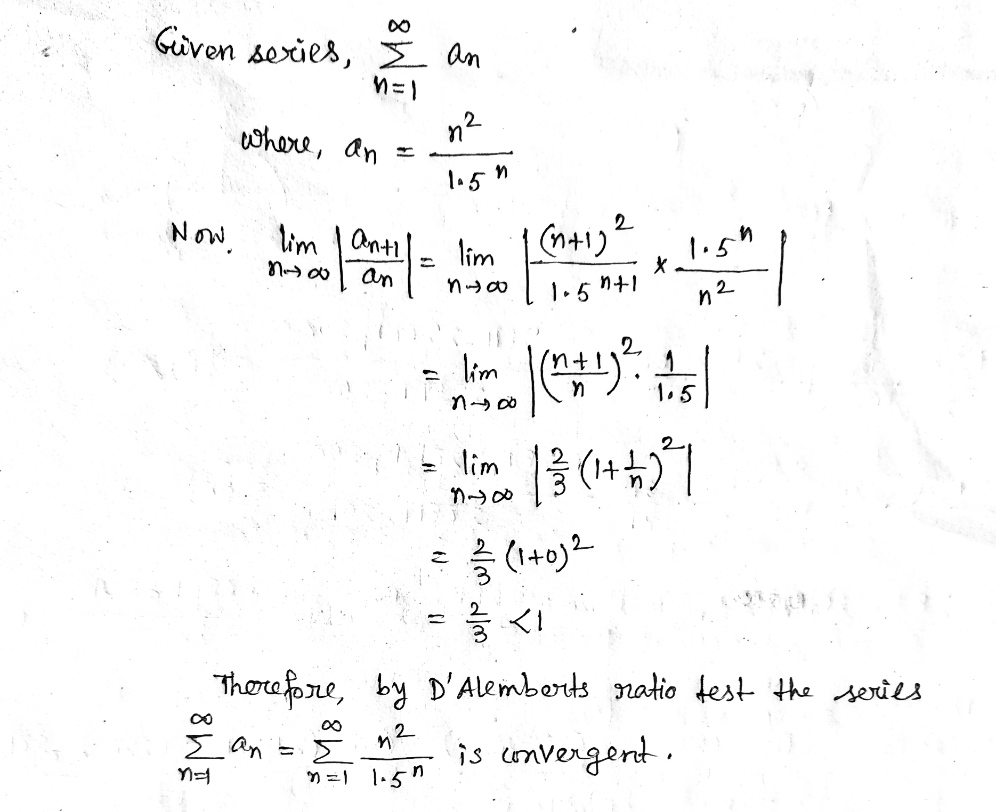 Given series, ∑_{n=1}^{∞} an
where, an = n²/1.5ⁿ
Now, lim_{n→∞} |an+1/an| = lim_{n→∞} |(n+1)²/1.5ⁿ⁺¹ × 1.5ⁿ/n²|
= lim_{n→∞} |((n+1)/n)² · 1/1.5|
= lim_{n→∞} |2/3 (1+1/n)²|
= 2/3 (1+0)²
= 2/3 <1
Therefore, by D'Alemberts ratio test the series
∑_{n=1}^{∞} an = ∑_{n=1}^{∞} n²/1.5ⁿ is convergent.